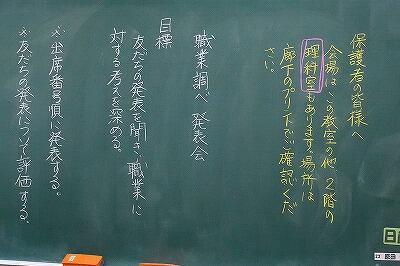 保護者の皆様へ
会場はこの教室の他、2階の
理科室もあります。場所は
廊下のプリントでご確認くだ
さい。
職業調べ 発表会
目標
友だちの発表を聞き、職業に
対する考えを深める。
※出席番号順に発表する。
※友だちの発表について評価する。
日